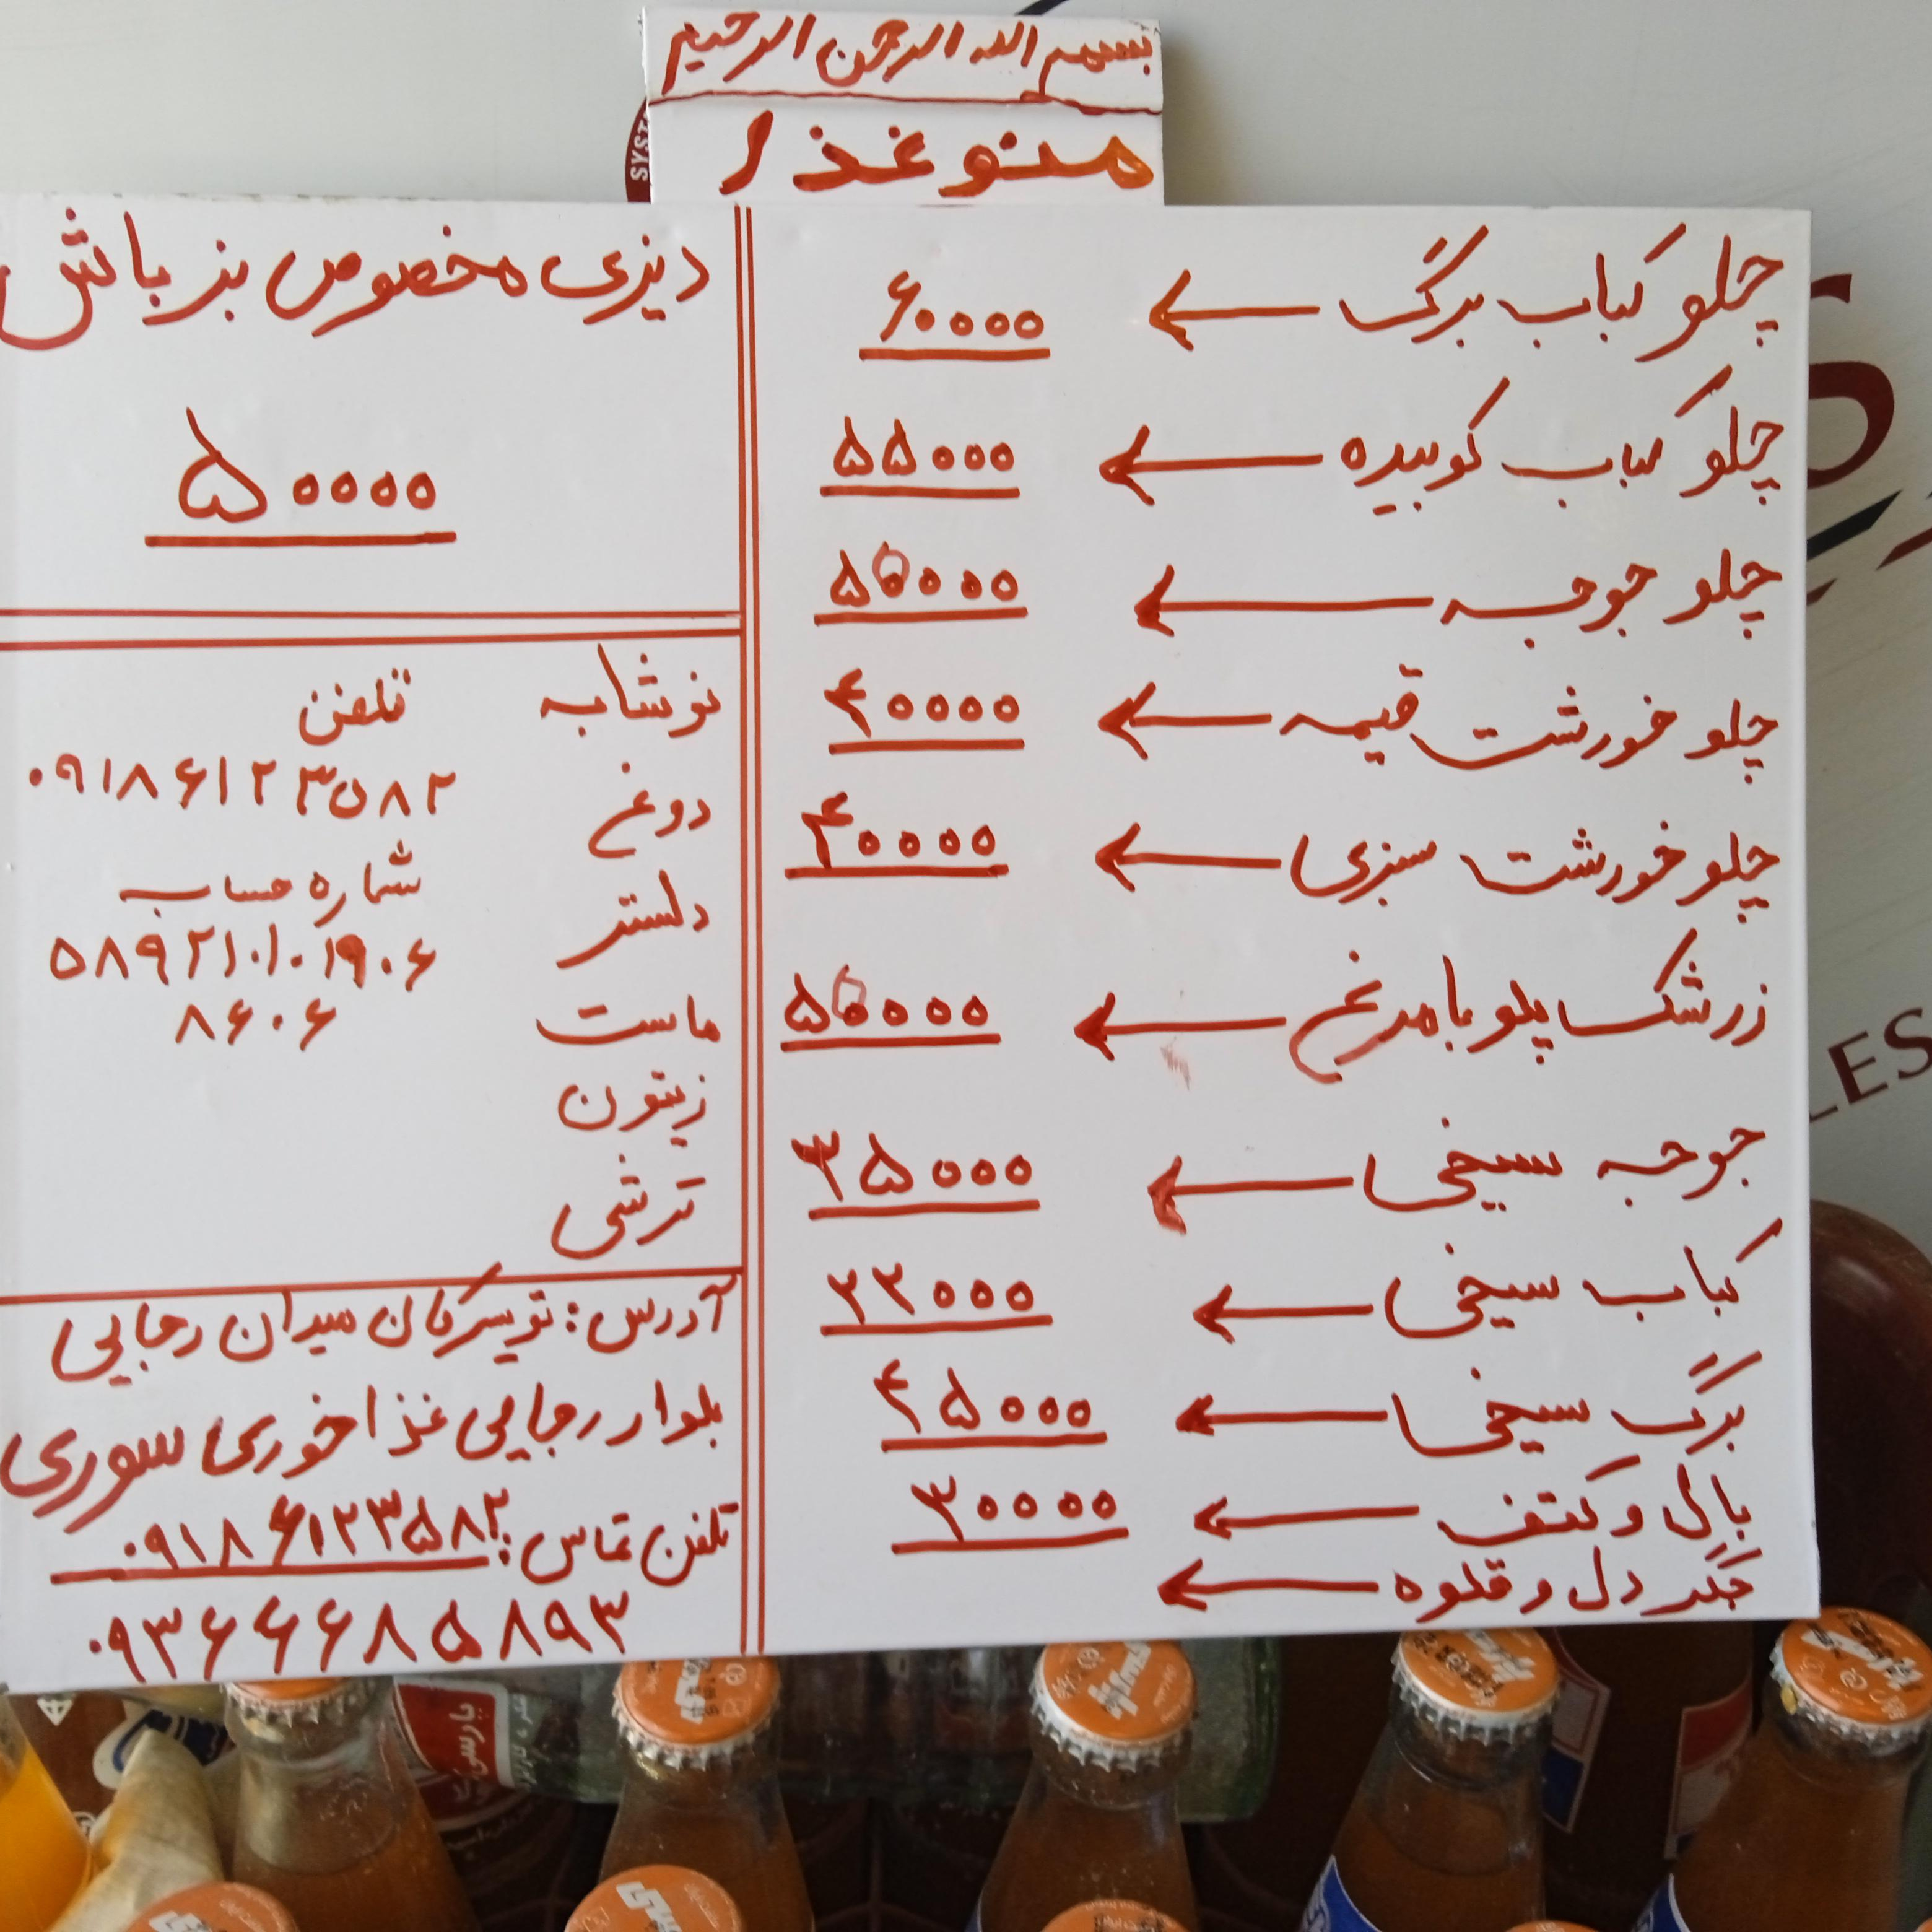 بسم الله الرحمن الرحیم
منو غذا
چلو کباب برگ ← ۶۰۰۰۰
چلو کباب کوبیده ← ۵۵۰۰۰
چلو جوجه ← ۵۵۰۰۰
چلو خورشت قیمه ← ۴۰۰۰۰
چلو خورشت سبزی ← ۴۰۰۰۰
زرشک پلو با مرغ ← ۵۵۰۰۰
جوجه سیخی ← ۳۵۰۰۰
کباب سیخی ← ۲۳۰۰۰
برگ سیخی ← ۴۵۰۰۰
بال و کتف ← ۳۰۰۰۰
جگر دل و قلوه ←
دیزی مخصوص بزباش
۵۰۰۰۰
نوشابه
دوغ
دلستر
ماست
زیتون
ترشی
تلفن
۰۹۱۸۶۱۲۳۵۸۲
شماره حساب
۵۸۹۲۱۰۱۰۱۹۰۶
۸۶۰۶
آدرس: تویسرکان میدان رجایی
بلوار رجایی غذاخوری سوری
تلفن تماس: ۰۹۱۸۶۱۲۳۵۸۲
۰۹۳۶۶۶۸۵۸۹۳
SYST
S
LES
پارسی